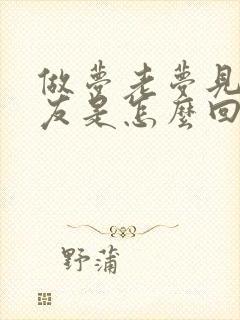 做夢老夢見
友是怎麼回
野蒲